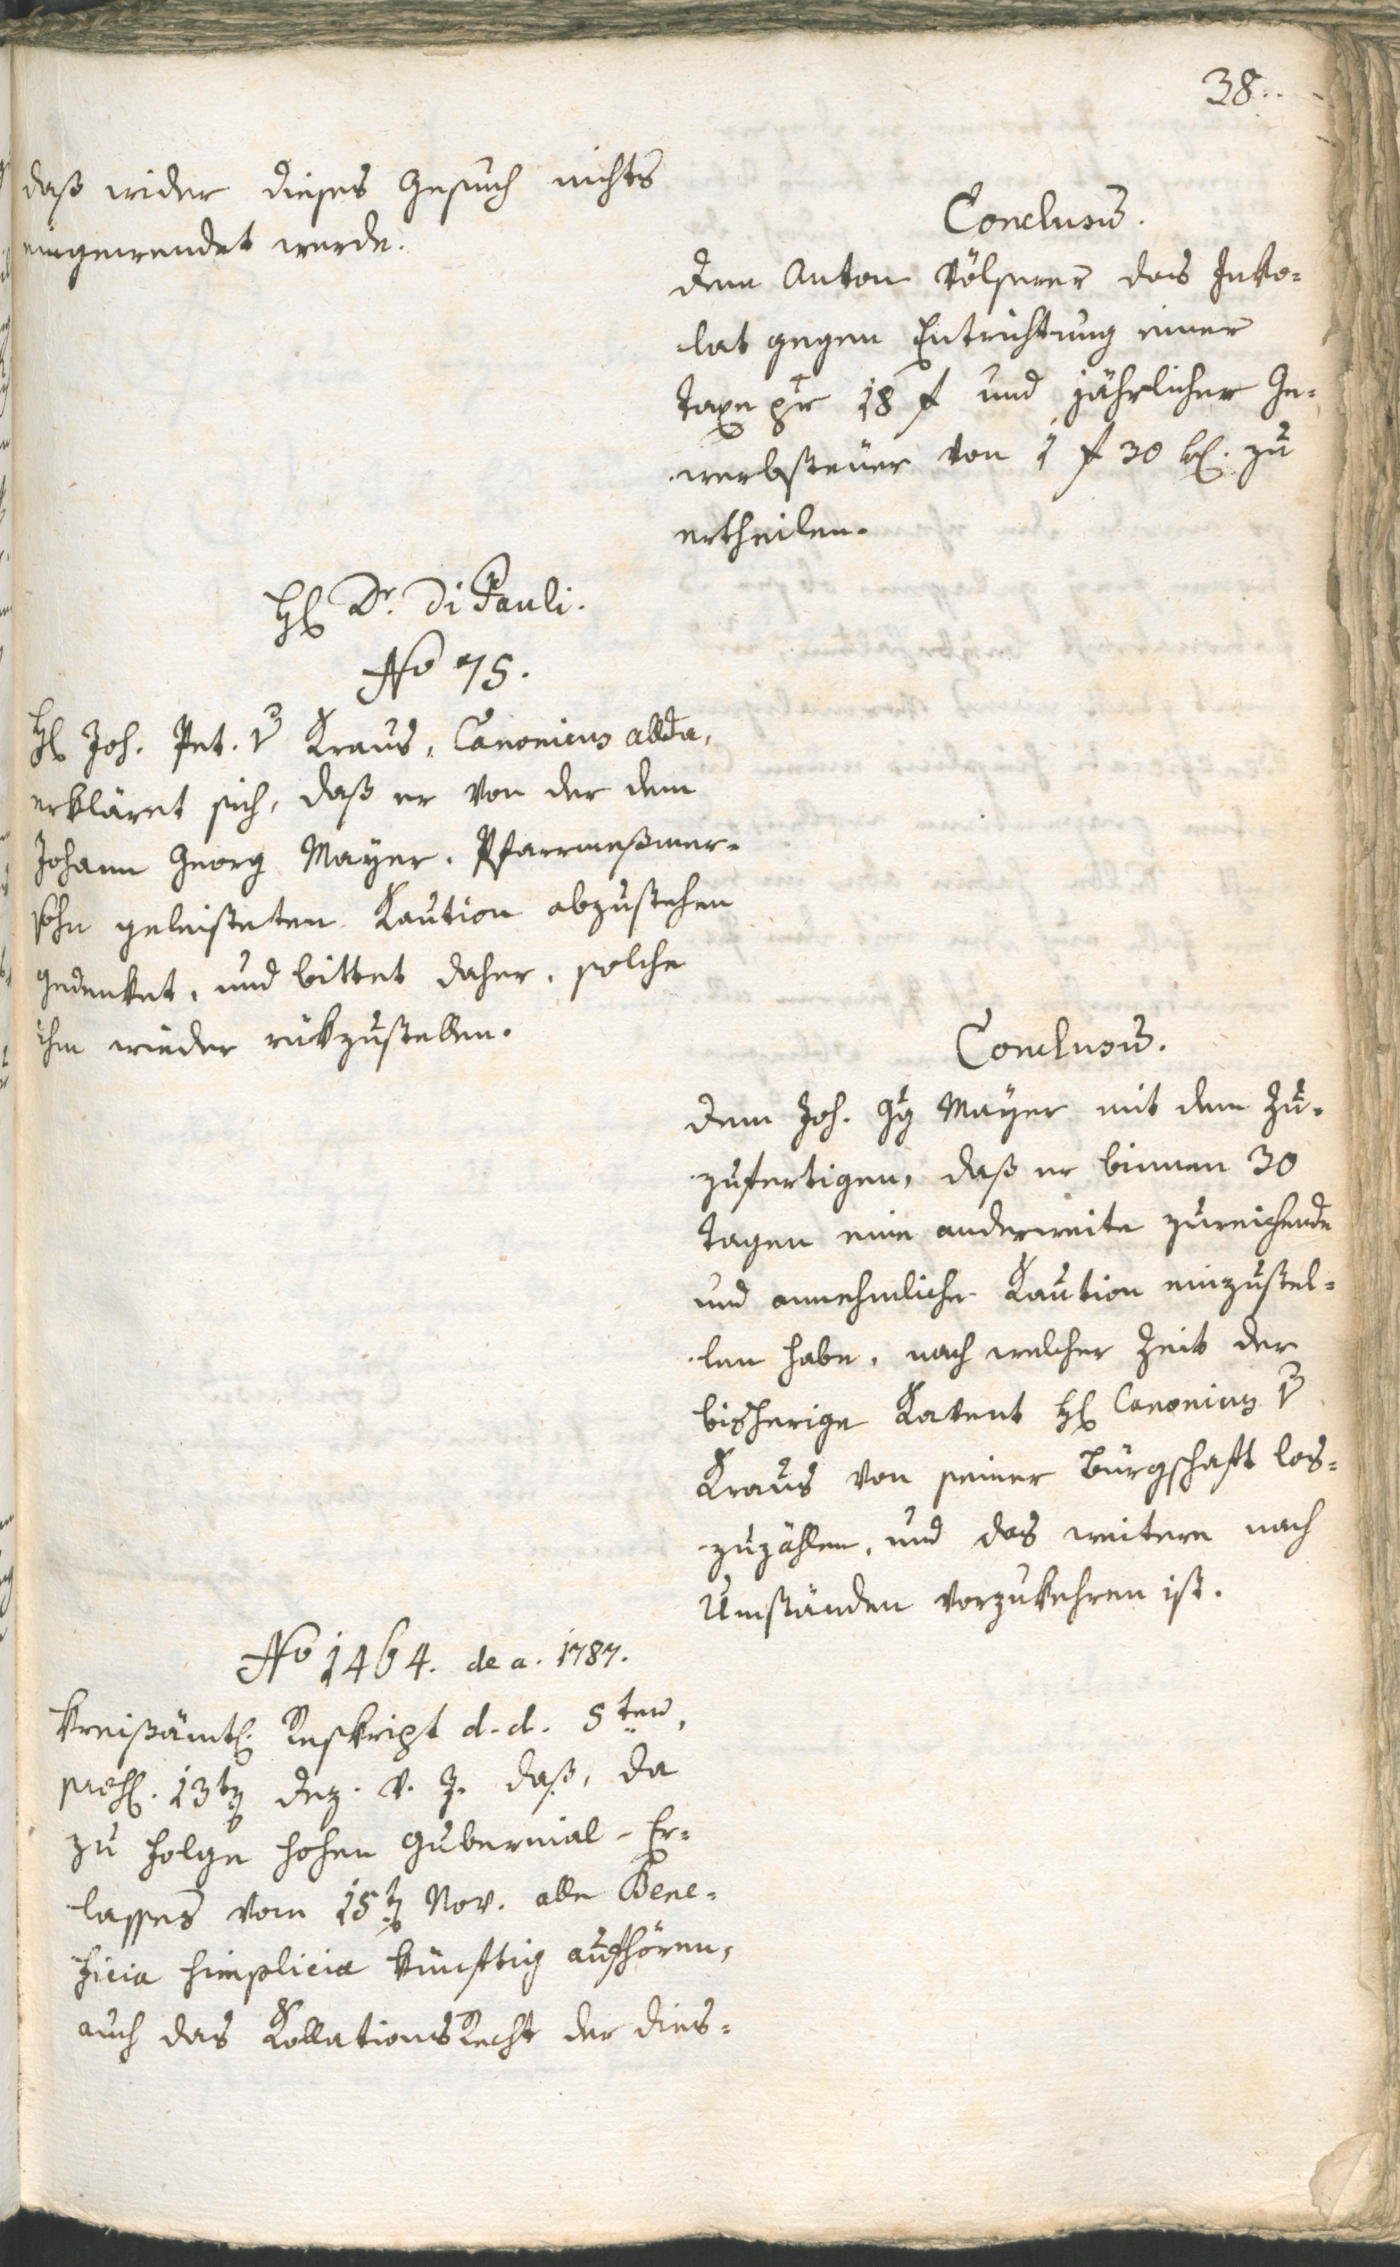 38.
daß wider dieses Gesuch nichts
eingewendet werde.
Conclusum.
Dem Anton Völserer das Inko=
lat gegen Entrichtung einer
Taxe pr 18 f und jährlicher Ge=
werbsteuer von 1 f 30 kr. zu
ertheilen.
H Dr. Di Pauli.
No 75.
H Joh. Pet. v Kraus, Canonicus allda,
erkläret sich, daß er von der dem
Johann Georg Mayer, Pfarrmeßmer=
sohn geleisteten Kaution abzustehen
gedenket, und bittet daher, solche
ihm wieder rükzustellen.
Conclusum.
Dem Joh. Gg Mayer mit dem Zu=
zufertigen, daß er binnen 30
Tagen eine anderweite zureichende
und annehmliche Kaution einzustel=
len habe, nach welcher Zeit der
bisherige Kavent H Canonicus v
Kraus von seiner Bürgschaft los=
zuzählen, und das weitere nach
Umständen vorzukehren ist.
No 1464. de a. 1787.
Kreißämtl. Reskript d. d. 5ten,
praes. 13t Dez. v. J. daß, da
zu Folge hohen Gubernial-Er=
lasses vom 15t Nov. alle Bene=
ficia simplicia künftig aufhören,
auch das KollationsRecht der dies=